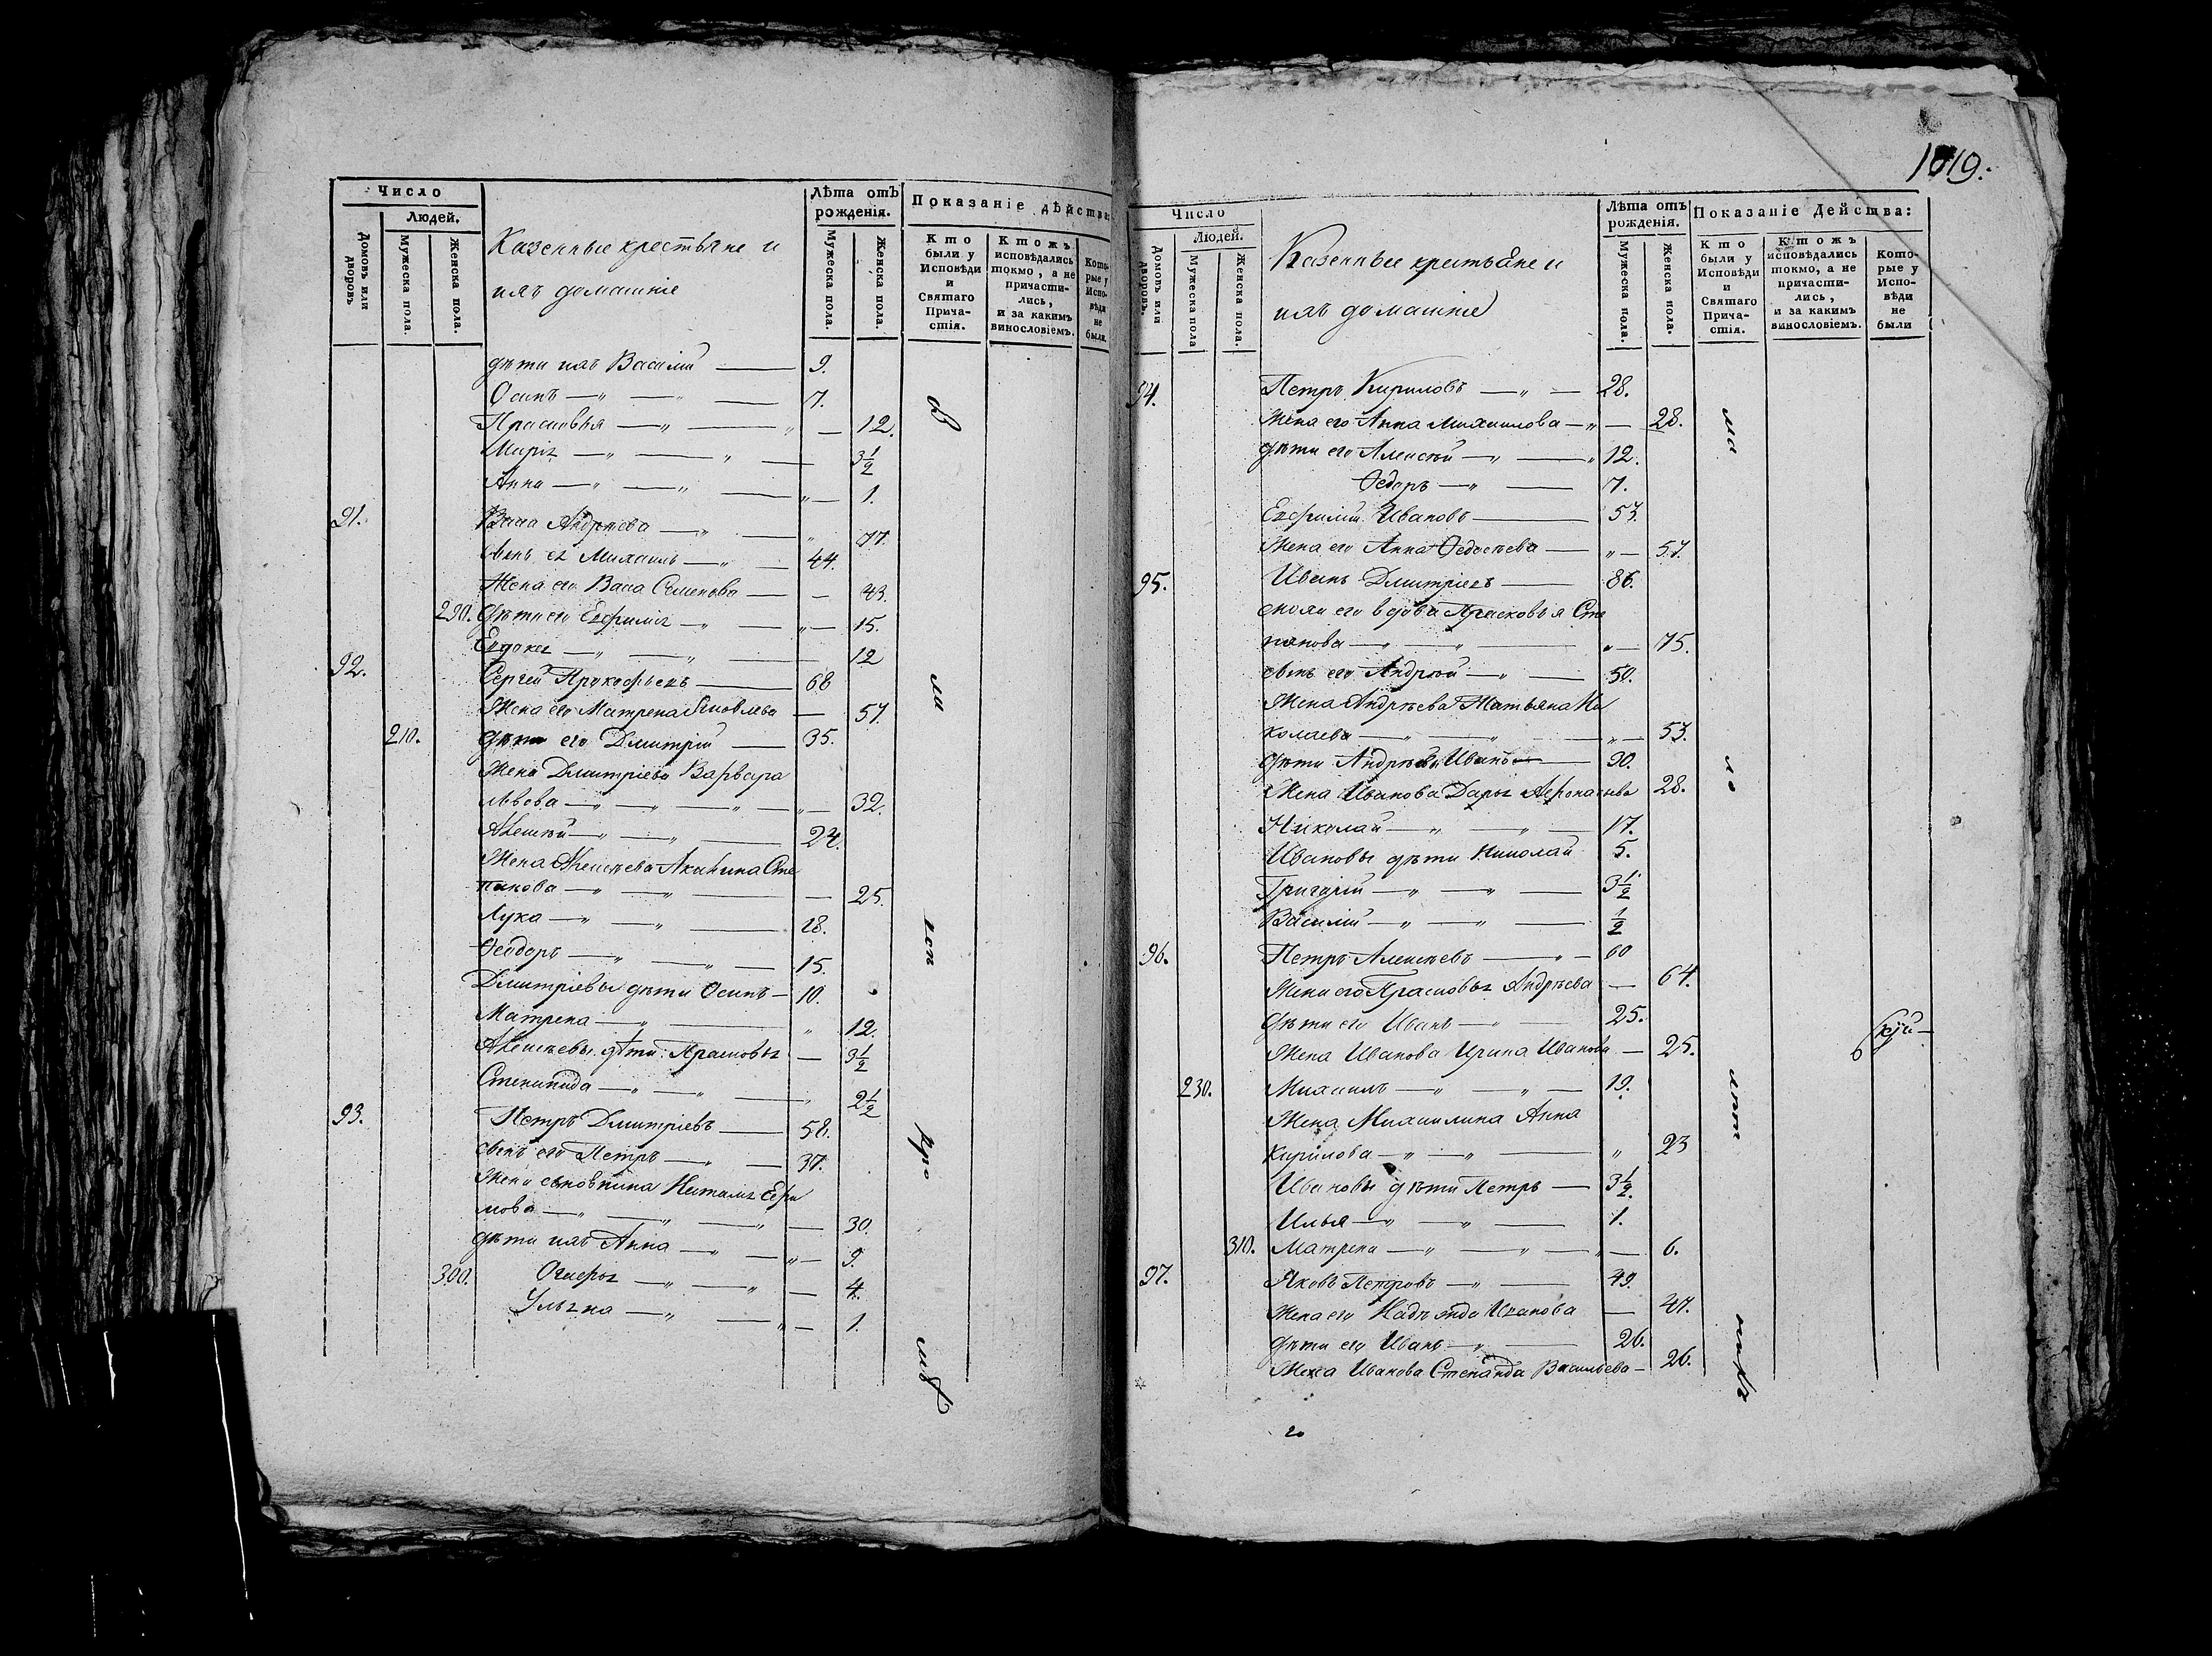 Число
Людей.
Домовъ или дворовъ
Мужеска пола.
Женска пола.
Казенные крестьяне и
ихъ домашніе
Лѣта отъ рожденія.
Мужеска пола.
Женска пола.
Показаніе дѣйства:
Кто были у Исповѣди и Святаго Прича-стія.
Ктожъ исповѣдались токмо, а не причасти-лись, и за какимъ винословіемъ.
Кото-рые у Испо-вѣди не были.
дѣти ихъ Василій 9.
Осипъ 7.
Прасковья 12.
Марія 3½
Анна 1.
91. Васа Андрѣева 77.
сынъ ея Михаилъ 44.
Жена его Васа Семенова 43.
290. дѣти его Евфимія 15.
Евдокея 12
92. Сергей Прокофьевъ 68
Жена его Матрена Яковлева 57.
210. дѣти его Дмитрій 35.
Жена Дмитріева Варвара
Львова 32.
Алексѣй 24.
Жена Алексѣева Акилина Сте
панова 25.
Лука 18.
Ѳеодоръ 15.
Дмитріевы дѣти Осипъ 10.
Матрена 12.
Алексѣевы дѣти: Прасковья 3½
Степанида 2½
93. Петръ Дмитріевъ 58.
сынъ его Петръ 37.
Жена сыновнина Наталья Ефи
мова 30.
дѣти ихъ Анна 9.
300. Агафья 4.
Ульяна 1.
1019.
Число
Людей.
Домовъ или дворовъ.
Мужеска пола
Женска пола.
Казенные крестьяне и
ихъ домашніе
Лѣта отъ рожденія.
Мужеска пола.
Женска пола.
Показаніе Действа:
Кто были у Исповѣди и Святаго Прича-стія.
Ктожъ исповѣдались токмо, а не причасти-лись, и за какимъ винословіемъ.
Кото-рые у Испо-вѣди не были
94. Петръ Кириловъ 28.
Жена его Анна Михаилова 28.
дѣти его Алексѣй 12.
Ѳедоръ 7.
Евфимій Ивановъ 57.
Жена его Анна Ѳедосѣева 57.
95. Иванъ Дмитріевъ 86.
сноха его вдова Прасковья Сте
панова 75.
сынъ его Андрѣй 50.
Жена Андрѣева Татьяна Ни
колаева 53.
дѣти Андрѣевы Иванъ 30.
Жена Иванова Дарья Афонасьева 28.
Николай 17.
Ивановы дѣти Николай 5.
Григорій 3½
Василій ½
96. Петръ Алексѣевъ 60
Жена его Прасковья Андрѣева 64.
дѣти его Иванъ 25.
Жена Иванова Ирина Иванова 25.
230. Михаилъ 19.
Жена Михаилина Анна
Кирилова 23
Ивановы дѣти Петръ 3½.
Илья 1.
310. Матрена 6.
97. Яковъ Петровъ 49.
Жена его Надѣжда Иванова 47.
дѣти его Иванъ 26.
Жена Иванова Степанида Васильева 26.